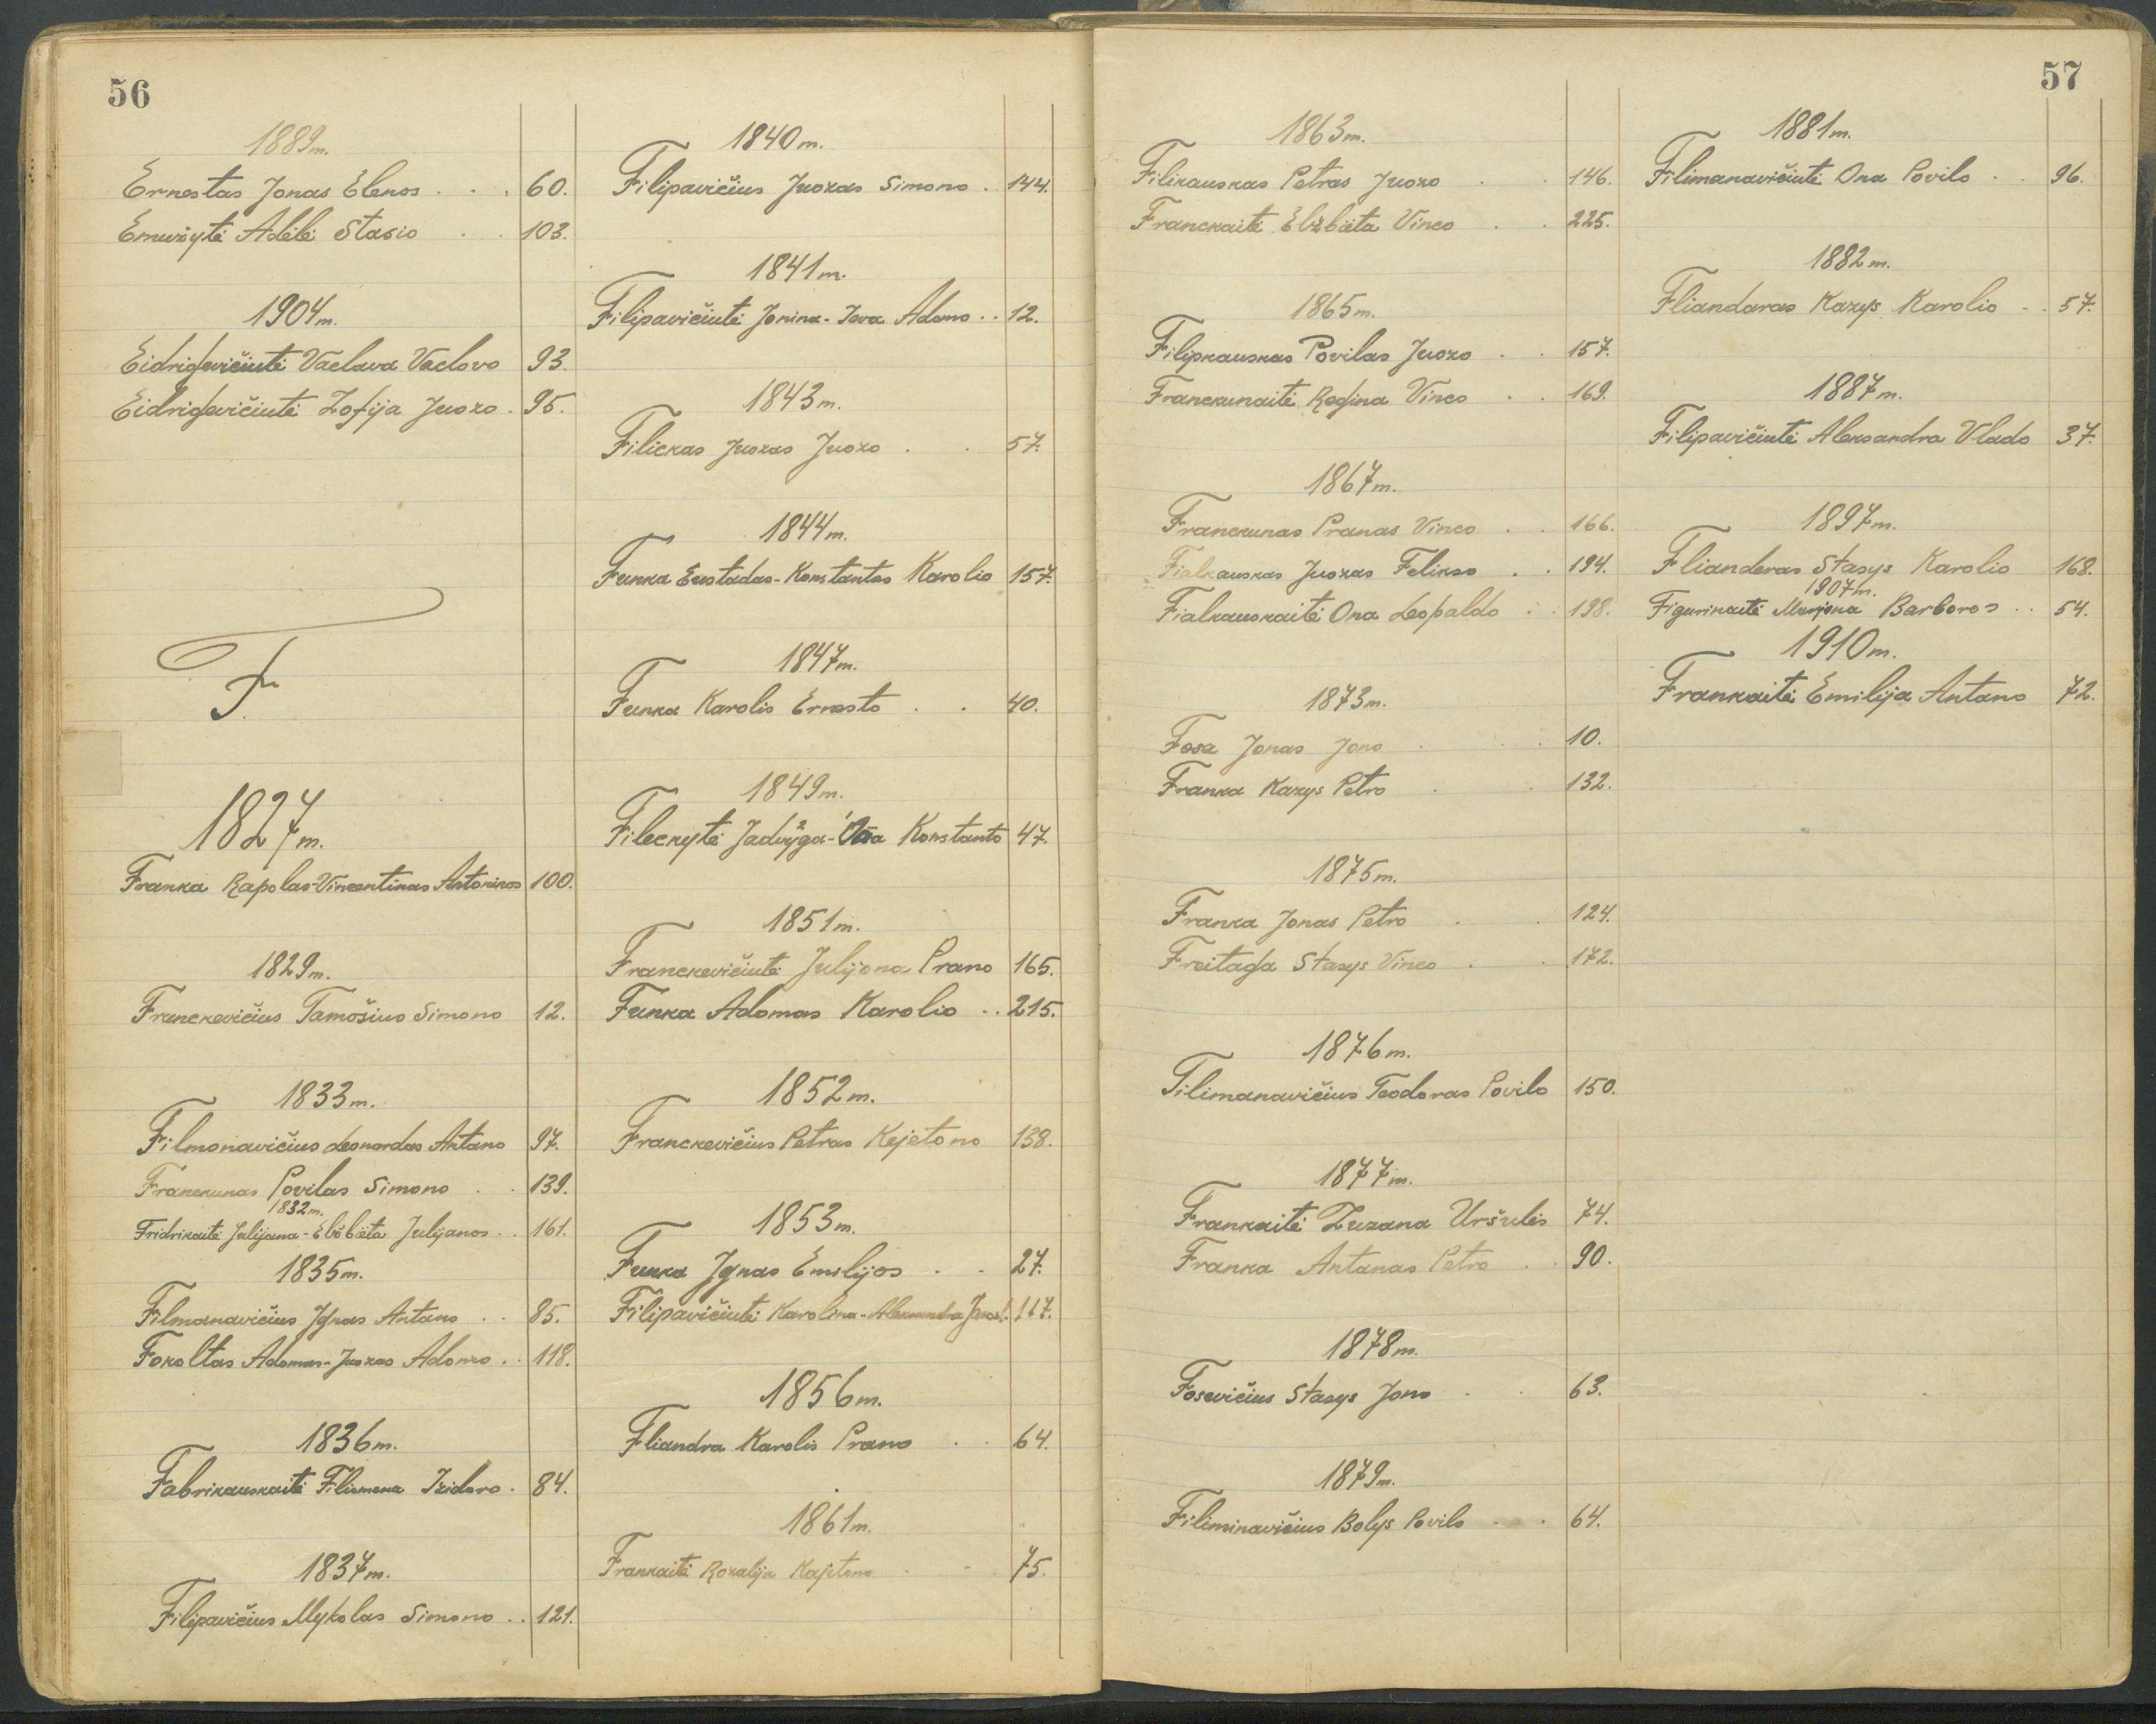 56
1889m.
Ernestas Jonas Elenos . . . 60.
Emužytė Adėlė Stasio . . 103.
1904m.
Eidrigevičiutė Vaclava Vaclovo 93.
Eidrigevičiutė Zofija Juozo . 95.
F.
1827m.
Franka Rapolas-Vincentinas Antoninos 100.
1829m.
Franckevičius Tamošius Simono 12.
1833m.
Filmonavičius Leonardas Antano 97.
Franckunas Povilas Simono . . 139.
1832m.
Fridrikaitė Julijana-Elžbieta Julijanos . . 161.
1835m.
Filmanavičius Ignas Antano . . 85.
Fokoltas Adomas-Juozas Adomo . . 118.
1836m.
Fabrikauskaitė Filiomena Izidoro . 84.
1837m.
Filipavičius Mykolas Simono . . 121.
1840m.
Filipavičius Juozas Simono . 144.
1841m.
Filipavičiutė Jonina-Ieva Adomo . . 12.
1843m.
Filickas Juozas Juozo . . 57.
1844m.
Funka Eustadas-Konstantas Karolio 157.
1847m.
Funka Karolis Ernesto . . 40.
1849m.
Fileckytė Jadvyga-Ona Konstanto 47.
1851m.
Franckevičiutė Julijona Prano 165.
Funka Adomas Karolio . . 215.
1852m.
Franckevičius Petras Kajetono 138.
1853m.
Funka Ignas Emilijos . . 27.
Filipavičiutė Karolina-Aleksandra 117.
1856m.
Fliandra Karolis Prano . . 64.
1861m.
Frankaitė Rozalija Kajetono . . 75.
57
1863m.
Filikauskas Petras Juozo . . 146.
Franckaitė Elžbieta Vinco . . 225.
1865m.
Filipkauskas Povilas Juozo . . 157.
Franckunaitė Regina Vinco . . 169.
1867m.
Franckunas Pranas Vinco . . 166.
Fialkauskas Juozas Felikso . . 194.
Fialkauskaitė Ona Leopoldo . . 198.
1873m.
Fosa Jonas Jono . . 10.
Franka Kazys Petro . . 132.
1875m.
Franka Jonas Petro . . 124.
Freitaga Stasys Vinco . . 172.
1876m.
Filimanavičius Teodoras Povilo 150.
1877m.
Frankaitė Zuzana Uršulės 74.
Franka Antanas Petro . . 90.
1878m.
Fosevičius Stasys Jono . . 63.
1879m.
Filiminavičius Bolys Povilo . . 64.
1881m.
Filimanavičiutė Ona Povilo . . 96.
1882m.
Fliandaras Kazys Karolio . . 57.
1887m.
Filipavičiutė Aleksandra Vlado 37.
1897m.
Flianderas Stasys Karolio 168.
1907m.
Figurinaitė Marijona Barboros . . 54.
1910m.
Frankaitė Emilija Antano 72.